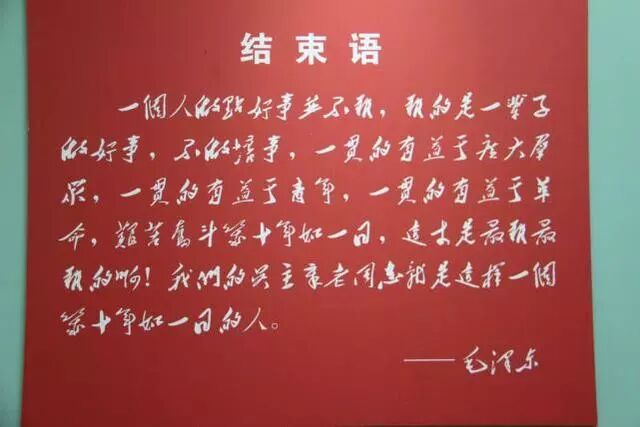 结束语
一個人做點好事並不難，難的是一輩子
做好事，不做壞事，一貫的有益于廣大羣
眾，一貫的有益于青年，一貫的有益于革
命，艱苦奮斗幾十年如一日，這才是最難最
難的啊！我們的吳玉章老同志就是這樣一個
幾十年如一日的人。
——毛澤东